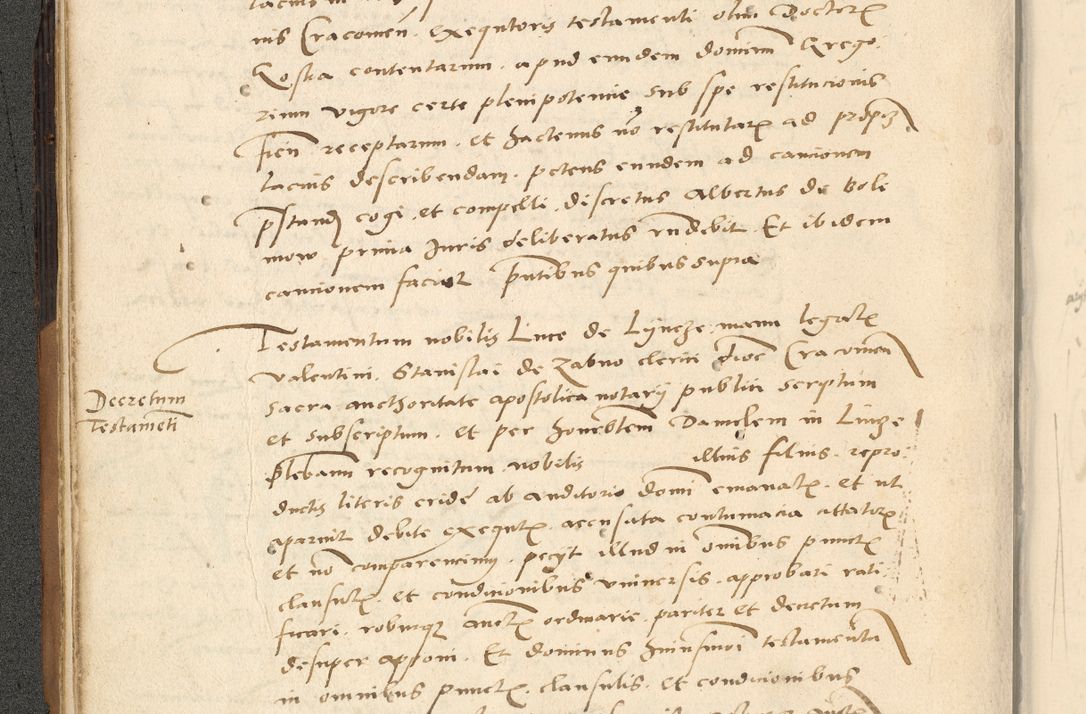 nis Cracovien. exequtoris testamenti olim Doctoris
Kostka contentarum. apud eundem dominum Grego
rium vigore certe plenipotencie sub spe restitucionis
fien receptarum. et hactenus no restitutarum ad
lacius describendam. petens eundem ad caucionem
pstand cogi et compelli. discretus Albertus de Bole
mow prima Juris deliberatus rndebit. Et ibidem
caucionem faciat pntibus quibus supra
Testamentum nobilis Luce de Lyncze manu legatis
Decretum
Testameti
Valentini. Stanislai de Zabno clerici dioc Cracovien
sacra aucthoritate apostolica notarij publici scriptum
et subscriptum. et per honorabilem Danielem in Lincze
plebanum recognitum nobilis illius filius. repro
ductis literis eride ab auditorio domi emanatis. et ut
aparuit debite exequtis. accusata contumacia citatorum
et no comparencium. peciit illud in omnibus punctis
clausulis. et condicionibus vniuersis. approbari rati
ficari. roburque auctis ordinarie. pariter et decretum
desuper apponi. Et dominus huiusmoi testamentum
in omnibus punctis. clausulis. et condicionibus